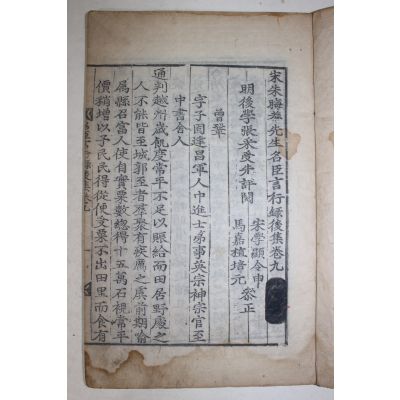 宋朱晦菴先生名臣言行錄後集卷九
明後學張采受先評閱
宋學顯令申
馬嘉植培元
參正
曾鞏
字子固建昌軍人中進士第事英宗神宗官至
中書舍人
通判越州歲飢度常平不足以賑給而田居野處之
人不能皆至城郭至者羣聚有疾癘之虞前期喻
屬縣召富人使自實粟數總得十五萬石視常平
價稍增以予民民得從便受粟不出田里而食有